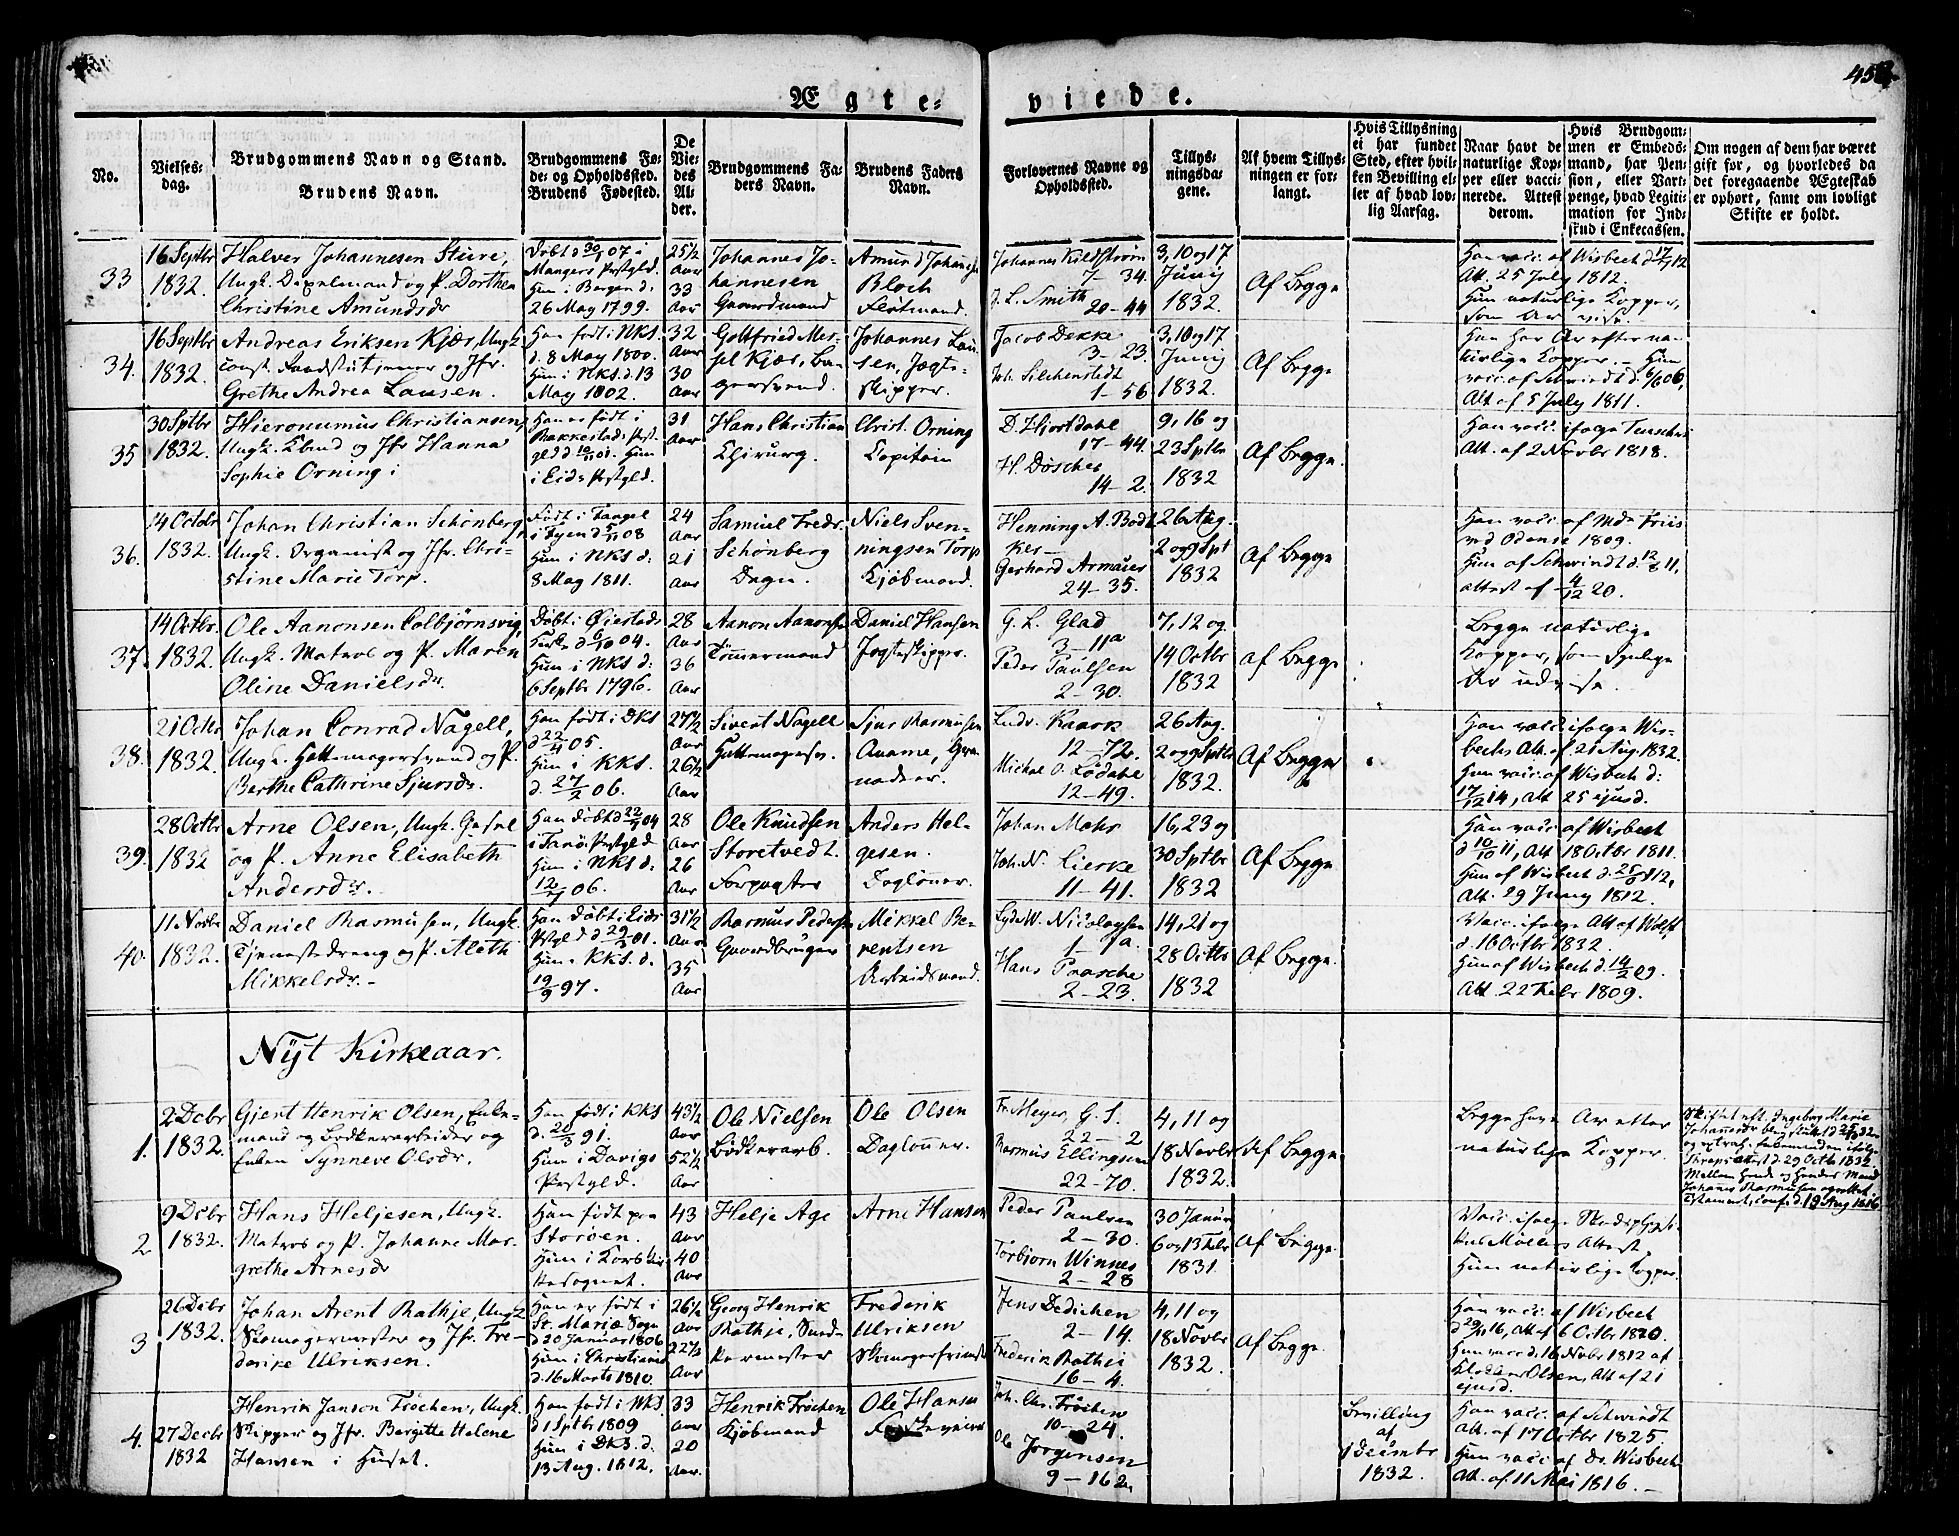 Ægte-
viede.
No.
Vielses-
dag.
Brudgommens Navn og Stand.
Brudens Navn.
Brudgommens Fø-
de- og Opholdsted.
Brudens Fødested.
De
Vie-
des
Al-
der.
Brudgommens Fa-
ders Navn.
Brudens Faders
Navn.
Forlovernes Navne og
Opholdsted.
Tillys-
ningsda-
gene.
Af hvem Tillys-
ningen er for-
langt.
Hvis Tillysning
ei har fundet
Sted, efter hvil-
ken Bevilling el-
ler af hvad lov-
lig Aarsag.
Naar havt de
naturlige Kop-
per eller vacci-
nerede. Attest
derom.
Hvis Brudgom-
men er Embeds-
mand, har Pen-
sion, eller Vart-
penge, hvad Legiti-
mation for Ind-
skud i Enkecassen.
Om nogen af dem har været
gift før, og hvorledes da
det foregaaende Ægteskab
er ophørt, samt om lovligt
Skifte er holdt.
33
16 Septbr
1832.
Halver Johannesen Sture,
Ungk. Dexelmand og P. Dorthea
Christine Amundsdr
Døbt d 30/1 07 i
Mangers Prstgld.
Hun i Bergen d.
26 May 1799.
25 1/2
Aar
33
Aar
Johannes Jo-
hannesen
Gaardmand
Amund Johannes
Bloch
Flotmand.
Johannes Kildstrøm
7 - 34.
J. L. Smith
20 - 44
3, 10 og 17
Juny
1832.
Af Begge
Han vacc. af Wisbech d 17/7 12
Att. 25 July 1812.
Hun naturlige Kopper,
som Ar vise.
34.
16 Septbr
1832.
Andreas Eriksen Kjær, Ungk.
const. Raadstutjener og Jfr.
Grethe Andrea Lausen.
Han født i NKS.
d. 8 May 1800.
Hun i NKS. d. 13
May 1802.
32
Aar
30
Aar
Gottfried Mes-
sel Kjær, Bø-
gersvend.
Johannes Lau-
sen, Jægt-
skipper.
Jacob Dekke
3 - 23.
Joh. Silchenstedt
1 - 56
3, 10 og 17
Juny
1832.
Af Begge
Han har Ar efter na-
turlige Kopper. - Hun
vacc. af Schwindt d. 6/8 06,
Att. af 5 July 1811.
35
30 Sptbr
1832.
Hieronumus Christiansen,
Ungk. Kbmd og Jfr Hanna
Sophie Orning i
Han er født i
Rakkestads Prst-
gld d 10/1 01. Hun
i Eids Prstgld.
31
Aar
Hans Christian
Chirurg.
Christ. Orning
Capitain
D. Hjortdahl
17 - 44.
H. Døscher
14 - 2.
9, 16 og
23 Sptbr
1832
Af Begge.
Han vacc. ifølge
Att. af 2 Novbr 1818.
36.
14 Octbr
1832.
Johan Christian Schønberg,
Ungk. Organist og Jfr. Chri-
stine Marie Torp.
Født i Faagel
i Fyen d 5/11 08
Hun i NKS d.
8 May 1811.
24
Aar
21
Aar
Samuel Fredr.
Schønberg
Degn.
Niels Sven-
ningsen Torp
Kjøbmand.
Henning A. Bødt-
ker
Gerhard Armauer
24 - 35.
26 Aug.
2 og 9 Spt
1832
Af Begge
Han vacc. af Mdm Friis
ved Odense 1809.
Hun af Schwindt d. 12/8 11,
attest af 4/12 20.
37.
14 Octbr.
1832.
Ole Aanonsen Colbjørnsvig,
Ungk. Matros og P. Maren
Oline Danielsdr.
Døbt i Øiestads
Kirke d 6/10 04.
Hun i NKS d:
6 Septbr 1796.
28
Aar
36
Aar
Aanon Aanonsen
Tømmermand
Daniel Hansen
Jægteskipper.
G. L. Glad
3 - 11a
Peder Paulsen
2 - 30.
7, 12 og
14 Octbr
1832
af Begge
Begge naturlige
Kopper, som synlige
Ar udvise.
38.
21 Octbr
1832.
Johan Conrad Nagell,
Ungk. Hattemagersvend og P.
Berthe Cathrine Sjursdr.
Han født i DKS
d 22/4 05.
Hun i KKS.
d. 27/2 06.
27 1/2
Aar
26 1/2
Aar
Sivert Nagell
Hattemagersv.
Sjur Rasmusen
Aname, Gre-
nadeer.
Ludv. Kaark
12 - 72.
Michel O. Lødahl
12 - 49.
26 Aug.
2 og 9 Sptbr
1832.
Af Begge
Han vacc. ifølge Wis-
bechs Att. af 21 Aug. 1832.
Hun vacc. af Wisbech d:
17/12 14, Att 25 ejusd.
39.
28 Octbr
1832
Arne Olsen, Ungk. Gesel
og P. Anne Elisabeth
Andersdr.
Han døbt d 22/7 04
i Fanø Prstgld
Hun i NKS d.
12/7 06.
28
Aar
26
Aar
Ole Knudsen
Storetvedt.
Forpagter
Anders Hel-
gesen.
Dagløner.
Johan Mohr
Joh. N. Cierke
11 - 41.
16, 23 og
30 Sptbr
1832
Af Begge
Han vacc. af Wisbech
d 10/10 11, Att 18 Octbr 1811.
Hun af Wisbech d. 25/6 12,
Att. 29 Juny 1812.
40.
11 Novbr
1832.
Daniel Rasmusen, Ungk.
Tjenestedreng og P. Aleth
Mikkelsdr.
Han døbt i Eids
Prstgld d 29/3 01.
Hun i KKS. d.
19/9 97.
31 1/2
Aar
35
Aar
Rasmus Pedersen
Gaardbruger
Mikkel Be-
rentsen
Arbeidsmand.
Lyder W. Nicolaysen
1 - 7a.
Hans Prasche
2 - 23.
14, 21 og
28 Octbr
1832
Af Begge.
Vacc. ifølge Att. af Wolff
d. 16 Octbr 1832.
Hun af Wisbech d. 14/2 09.
Att. 22 Febr 1809.
Nyt Kirkeaar.
1.
2 Dcbr
1832.
Gjert Henrik Olsen, Enke-
mand og Bødkerarbeider og
Enken Synneve Olsdr.
Han født i KKS
d. 20/3 91.
Hun i Davigs
Prstgld.
43 1/2
Aar
52 1/2
Aar
Ole Nielsen
Bødkerarb.
Ole Olsen
Dagløner.
Fr. Meyer, G. S.
22 - 2
Rasmus Ellingsen
22 - 70.
4, 11 og
18 Novbr
1832.
Af Begge
Begge have Ar efter
naturlige Kopper.
Skiftet eft. Ingeborg Marie
Johannesdr
og extrah. Enkemanden ifølge
Skrapsattest d. 29 Octbr 1832.
Mellem Hende og Hendes Mand
Johannes Rasmusen oprettet
Testament, conf. d. 19 Aug 1816.
2
9 Dcbr
1832.
Hans Heljesen, Ungk.
Matros og P. Johanne Mar-
grethe Arnesdr
Han født paa
Storøen.
Hun i Kors Kir-
kesognet.
43
Aar
40
Aar
Helje Age
Arne Hansen
Peder Paulsen
2 - 30.
Torbjørn Winnes
2 - 28
30 Januar
6 og 13 Febr
1831.
Af Begge.
Vacc. ifølge Stadsphysi-
kus Møllers Attest
Hun naturlige Kopper.
3
26 Dcbr
1832.
Johan Arent Rathje, Ungk.
Skomagermester og Jfr. Fre-
derike Ulriksen.
Han er født i
St. Mariæ Sogn
d 20 Januar 1806
Hun i Christiania
d. 16 Marts 1810.
26 1/2
Aar
22 1/2
Aar
Georg Henrik
Rathje, Sned-
kermester
Frederik
Ulriksen
Skomagerfrimst
Jens Dedichen
2 - 14.
Frederik Rathei
16 - 4.
4, 11 og
18 Novbr
1832.
Af Begge.
Han vacc. af Wisbech
d 29/11 16, Att af 6 Octbr 1820.
Hun vacc d. 16 Novbr 1812 af
Klokker Olsen, Att af 21
ejusd.
4.
27 Decbr
1832
Henrik Janson Frøchen, Ungk.
Skipper og Jfr. Bergitte Helene
Hansen i Huset.
Han født i NKS.
d 1 Sptbr 1809
Hun i DKS. d.
13 Aug. 1812.
33
Aar
20
Aar.
Henrik Frøchen
Kjøbmand
Ole Hansen
Joh. Chr. Frøchen
10 - 24.
Ole Jørgensen
9 - 162
Bevilling
af
1 Decembr
1832.
Han vacc. af Schwindt
Att. af 17 Octbr 1825
Hun vacc af Dr. Wisbech
Att. af 11 Mai 1816.